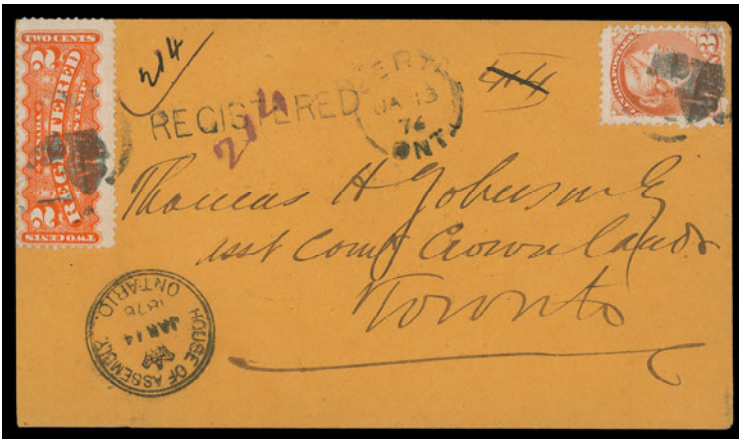 TWO CENTS
2
CANADA
REGISTERED
2
TWO CENTS
214
REGISTERED
214
JA 13
76
ONT.
44
3
Thomas H
asst Comr Crown Lands
Toronto
HOUSE OF ASSEMBLY
JAN 14
1876
ONTARIO.